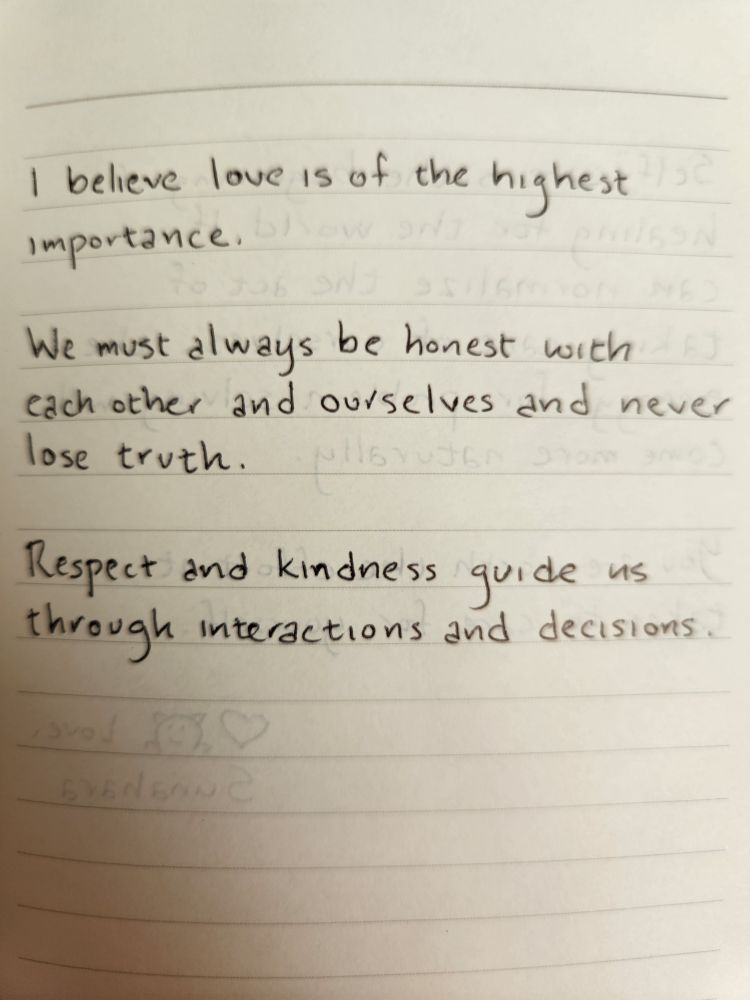 I believe love is of the highest
importance.
We must always be honest with
each other and ourselves and never
lose truth.
Respect and kindness guide us
through interactions and decisions.